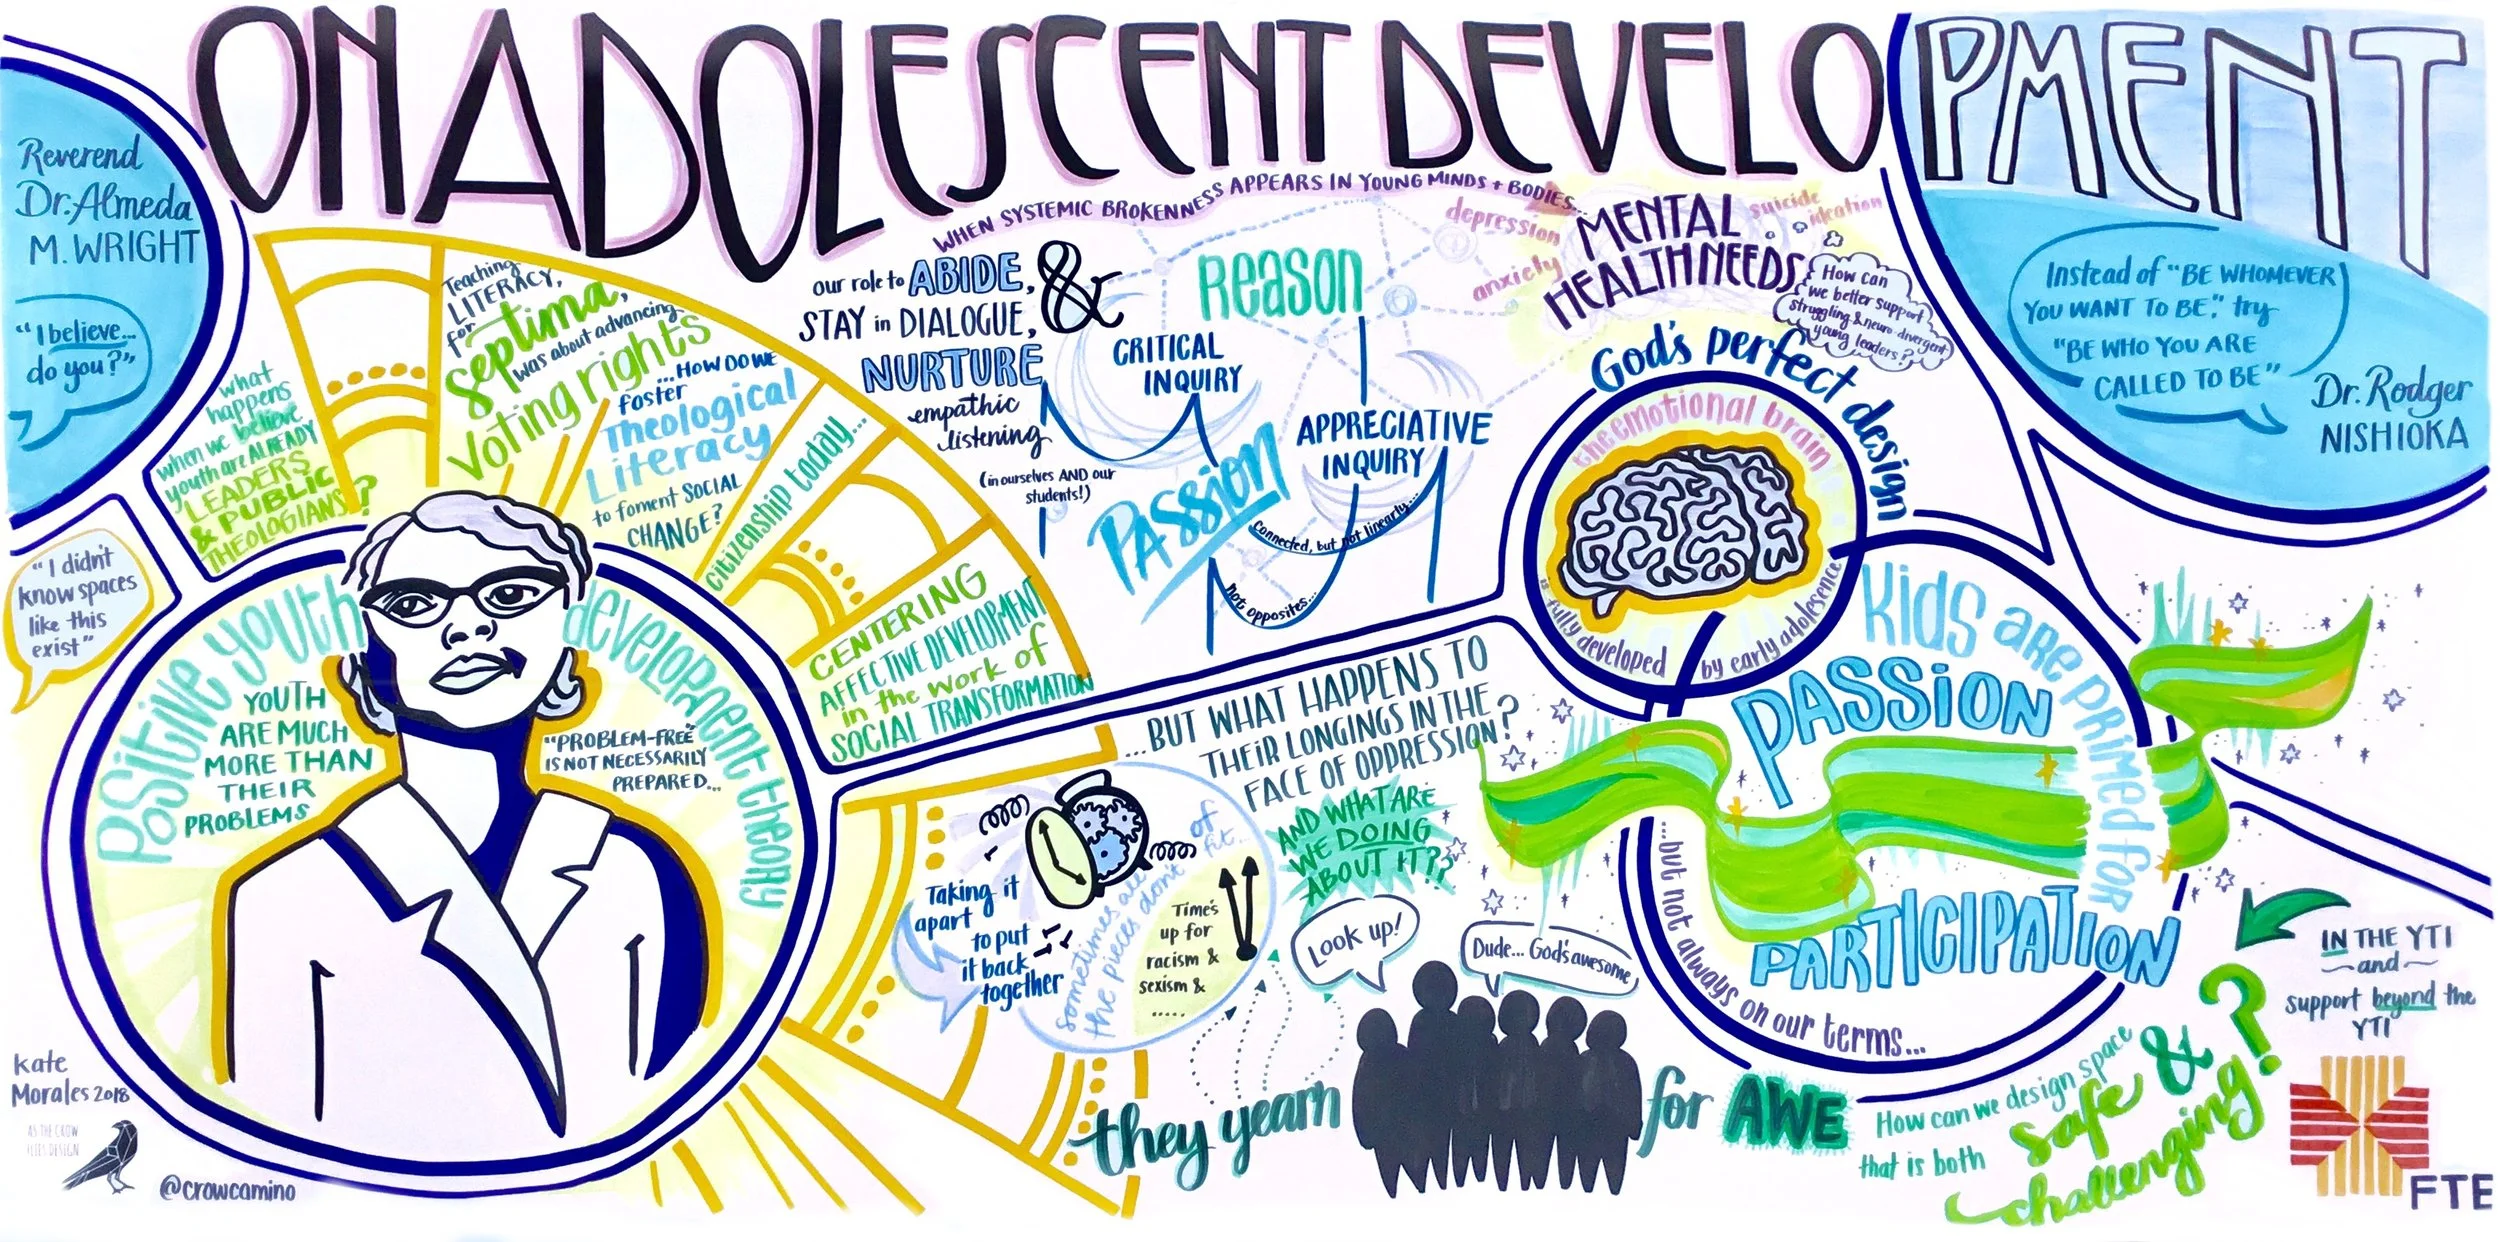 ON ADOLESCENT DEVELOPMENT
Reverend
Dr. Almeda
M. WRIGHT
"I believe...
do you?"
"I didn't
know spaces
like this
exist"
what
happens
when we believe
youth are ALREADY
LEADERS
& PUBLIC
THEOLOGIANS?
Teaching
LITERACY,
for
septima,
was about advancing
Voting rights
...HOW DO WE
foster
Theological
Literacy
to foment SOCIAL
CHANGE?
citizenship today...
CENTERING
AFFECTIVE DEVELOPMENT
in the work of
SOCIAL TRANSFORMATION
Positive youth development theory
YOUTH
ARE MUCH
MORE THAN
THEIR
PROBLEMS
"PROBLEM-FREE"
IS NOT NECESSARILY
PREPARED...
WHEN SYSTEMIC BROKENNESS APPEARS IN YOUNG MINDS + BODIES...
our role to ABIDE,
STAY in DIALOGUE,
NURTURE
empathic
listening
(in ourselves AND our
students!)
&
CRITICAL
INQUIRY
Reason
APPRECIATIVE
INQUIRY
PASSION
connected, but not linearly...
not opposites...
depression
anxiety
suicide
ideation
MENTAL
HEALTH NEEDS
How can
we better support
struggling & neuro-divergent
young leaders?
God's perfect design
the emotional brain
is fully developed by early adolesence
Instead of "BE WHOMEVER
YOU WANT TO BE", try
"BE WHO YOU ARE
CALLED TO BE"
Dr. Rodger
NISHIOKA
Kids are primed for
PASSION
PARTICIPATION
...but not always on our terms...
...BUT WHAT HAPPENS TO
THEIR LONGINGS IN THE
FACE OF OPPRESSION?
AND WHAT ARE
WE DOING
ABOUT IT??
Taking it
apart
to put
it back
together
sometimes all of
the pieces don't fit..
Time's
up for
racism &
sexism &
.....
Look up!
Dude... God's awesome
they yearn for AWE
How can we design space
that is both
safe &
challenging?
IN THE YTI
and
support beyond the
YTI
FTE
Kate
Morales 2018
AS THE CROW
FLIES DESIGN
@crowcamino